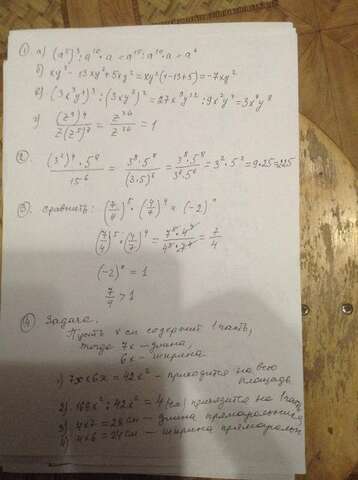 ① а) (a⁵)³ : a¹⁰ · a = a¹⁵ : a¹⁰ · a = a⁶
б) xy² - 13xy² + 5xy² = xy²(1-13+5) = -7xy²
в) (3x³y⁴)³ : (3xy²)² = 27x⁹y¹² : 9x²y⁴ = 3x⁷y⁸
г) (z⁹)⁴ / z(z⁵)⁷ = z³⁶ / z³⁶ = 1
② (3²)⁴ · 5⁸ / 15⁶ = 3⁸ · 5⁸ / (3·5)⁶ = 3⁸ · 5⁸ / 3⁶ · 5⁶ = 3² · 5² = 9·25 = 225
③. Сравнить: (7/4)⁵ · (4/7)⁴ и (-2)⁰
(7/4)⁵ · (4/7)⁴ = 7⁵ · 4⁴ / 4⁵ · 7⁴ = 7/4
(-2)⁰ = 1
7/4 > 1
④ Задача.
Пусть x см содержит 1 часть,
тогда 7x - длина,
6x - ширина
1) 7x · 6x = 42x² - приходится на всю
площадь
2) 168x² : 42x² = 4 (см) приходится на 1 часть
3) 4·7 = 28 см - длина прямоугольника
4·6 = 24 см - ширина